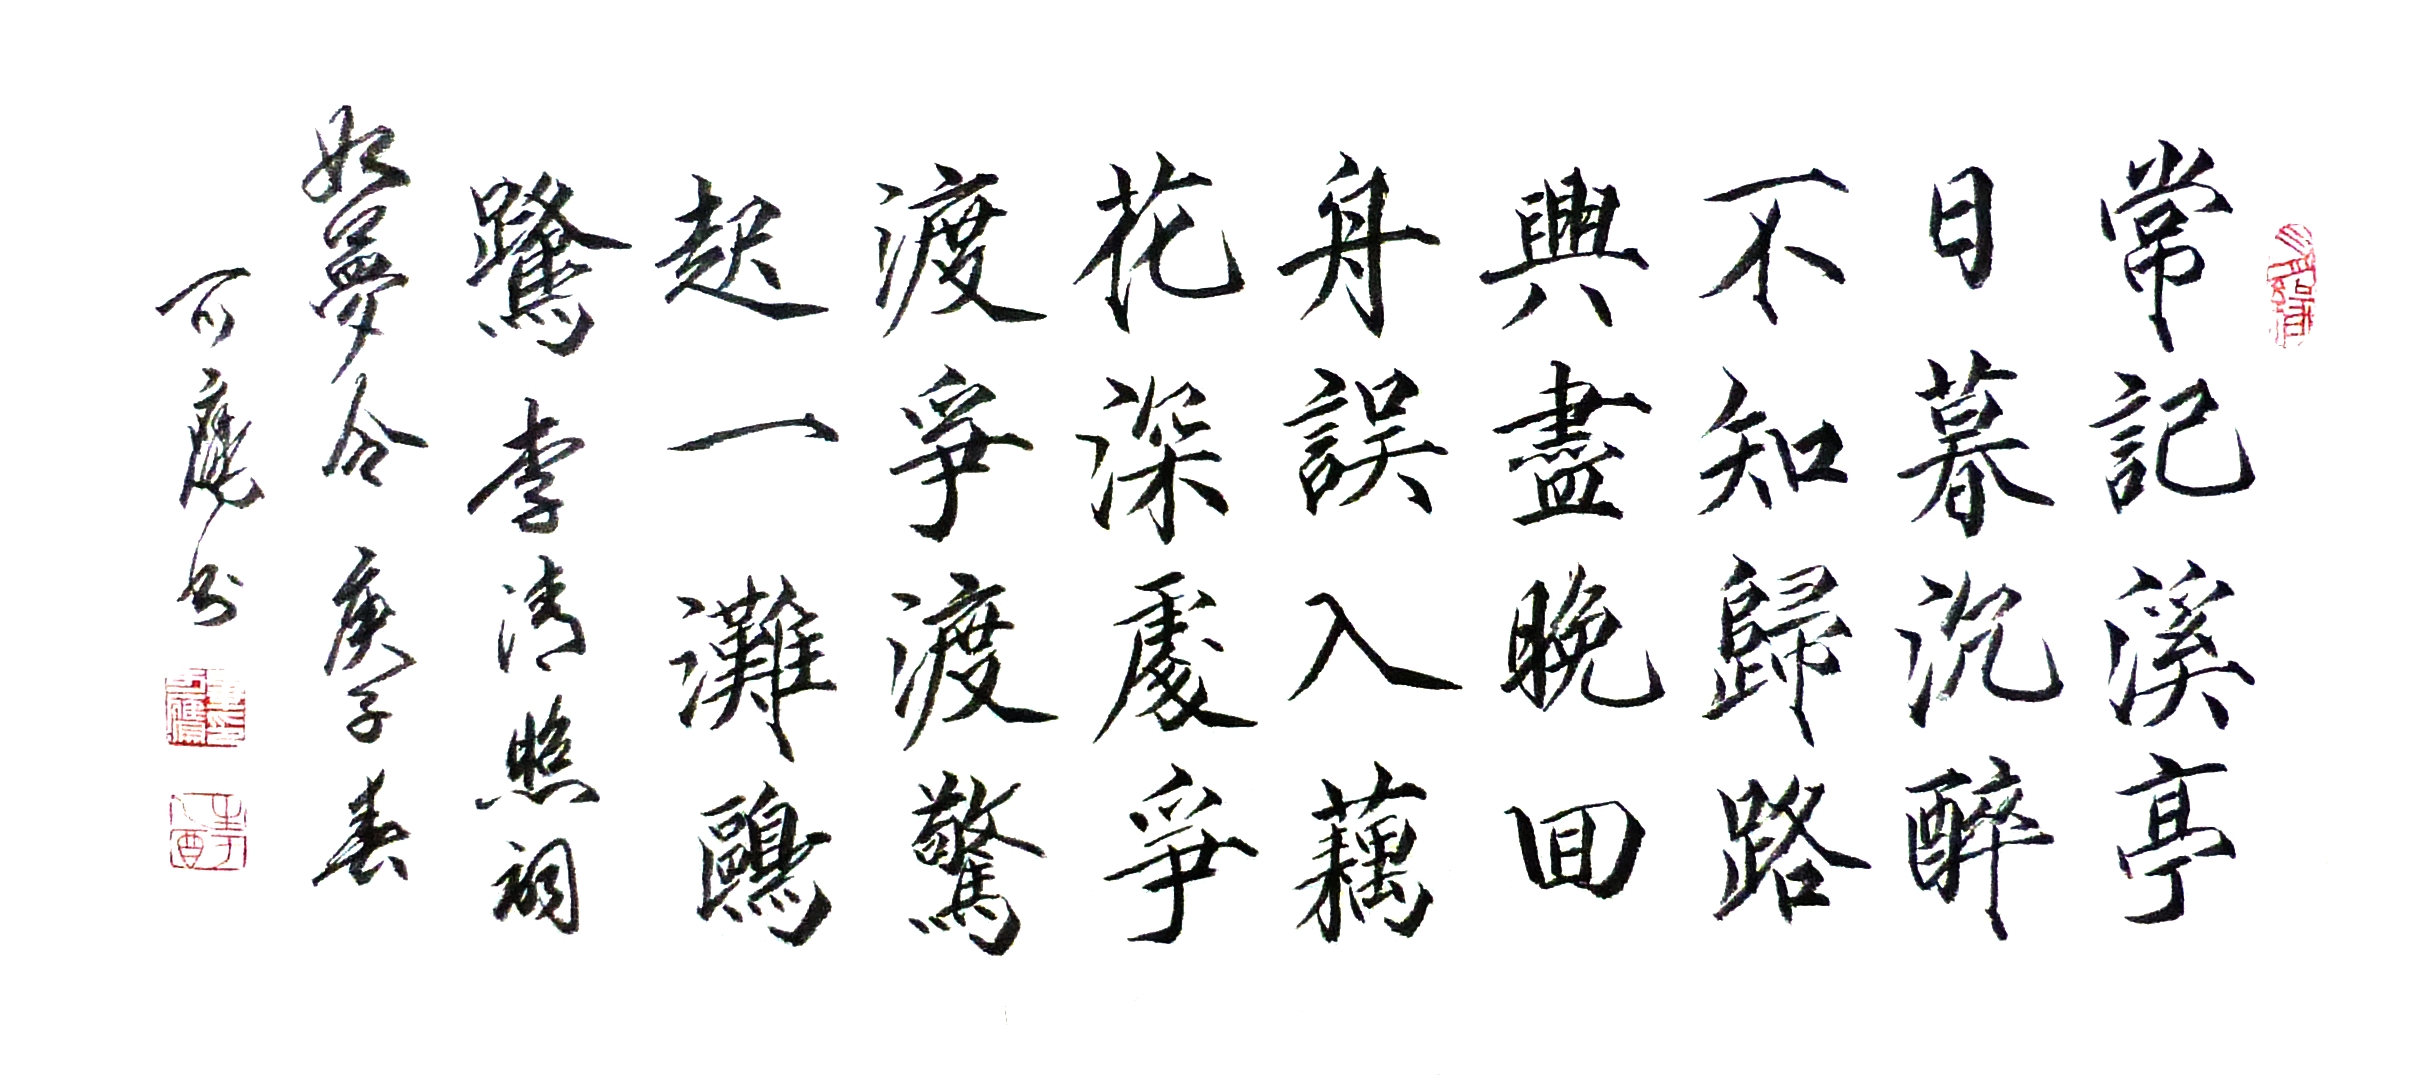 常記溪亭
日暮沉醉
不知歸路
興盡晚回
舟誤入藕
花深處爭
渡爭渡驚
起一灘鷗
鷺 李清照詞
如夢令 庚子春